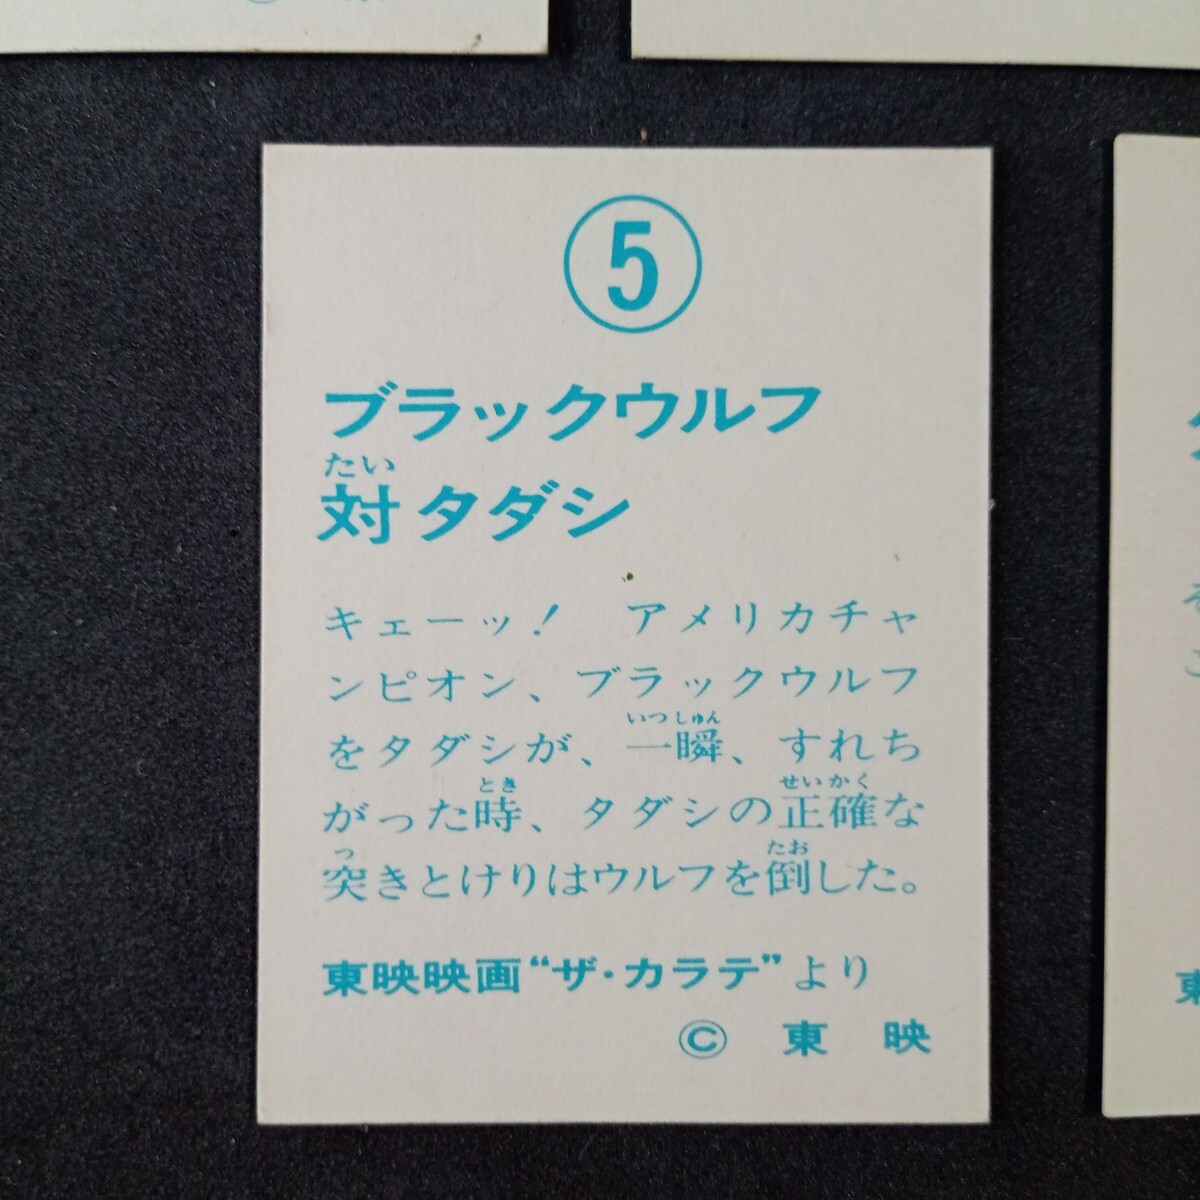 5
ブラックウルフ
たい
対タダシ
キェーッ！　アメリカチャ
ンピオン、ブラックウルフ
いつしゅん
をタダシが、一瞬、すれち
とき せいかく
がった時、タダシの正確な
つ たお
突きとけりはウルフを倒した。
東映映画“ザ・カラテ”より
© 東 映
東